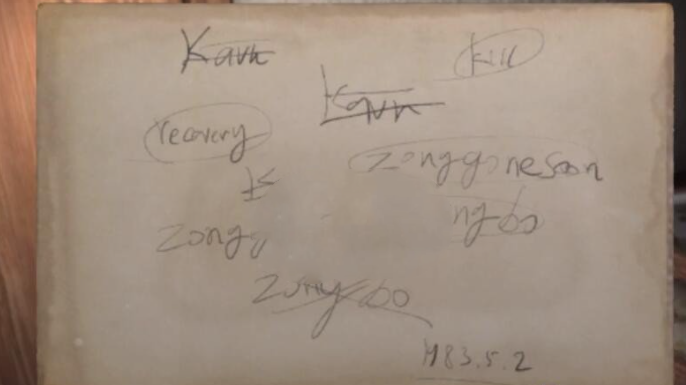 Kavk
kill
Kavk
recovery
zonggonesoon
K
ngbo
zong
zongbo
M83.5.2